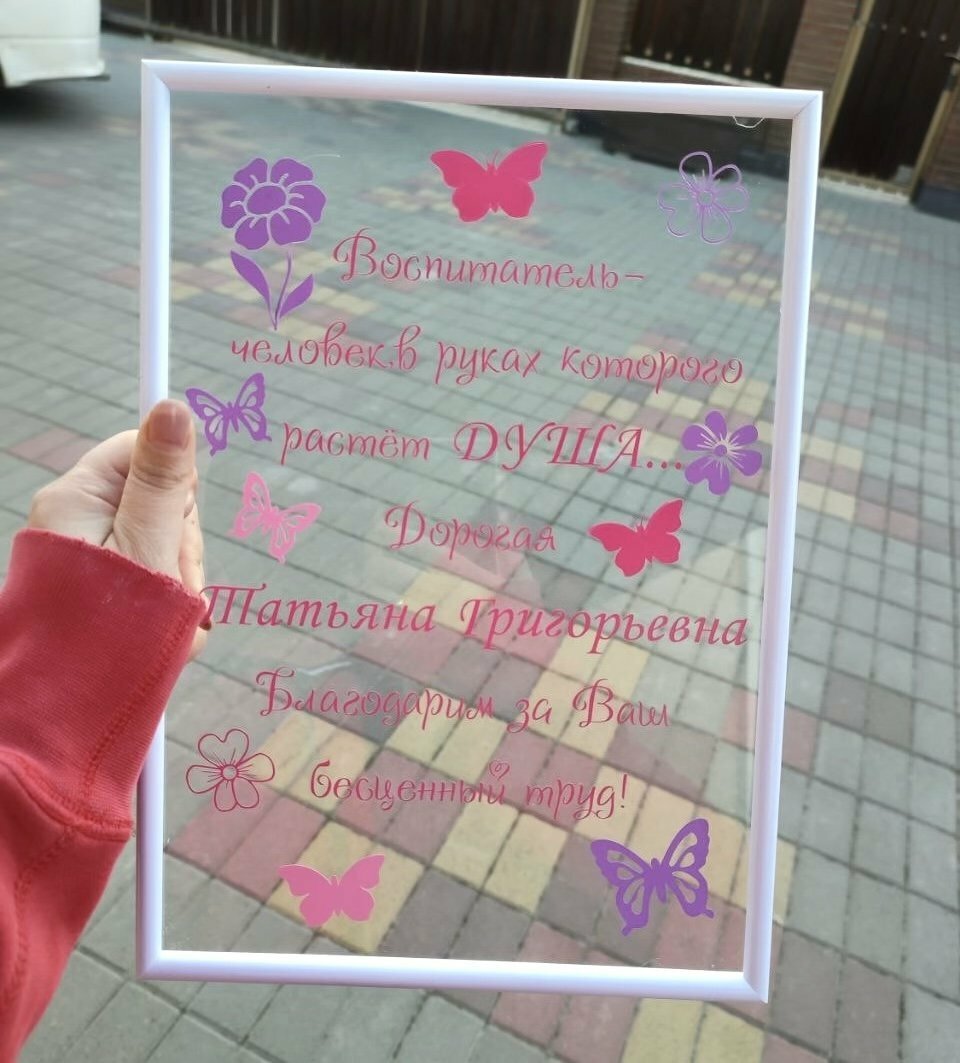 Воспитатель-
человек,в руках которого
растёт ДУША...
Дорогая
Татьяна Григорьевна
Благодарим за Ваш
бесценный труд!